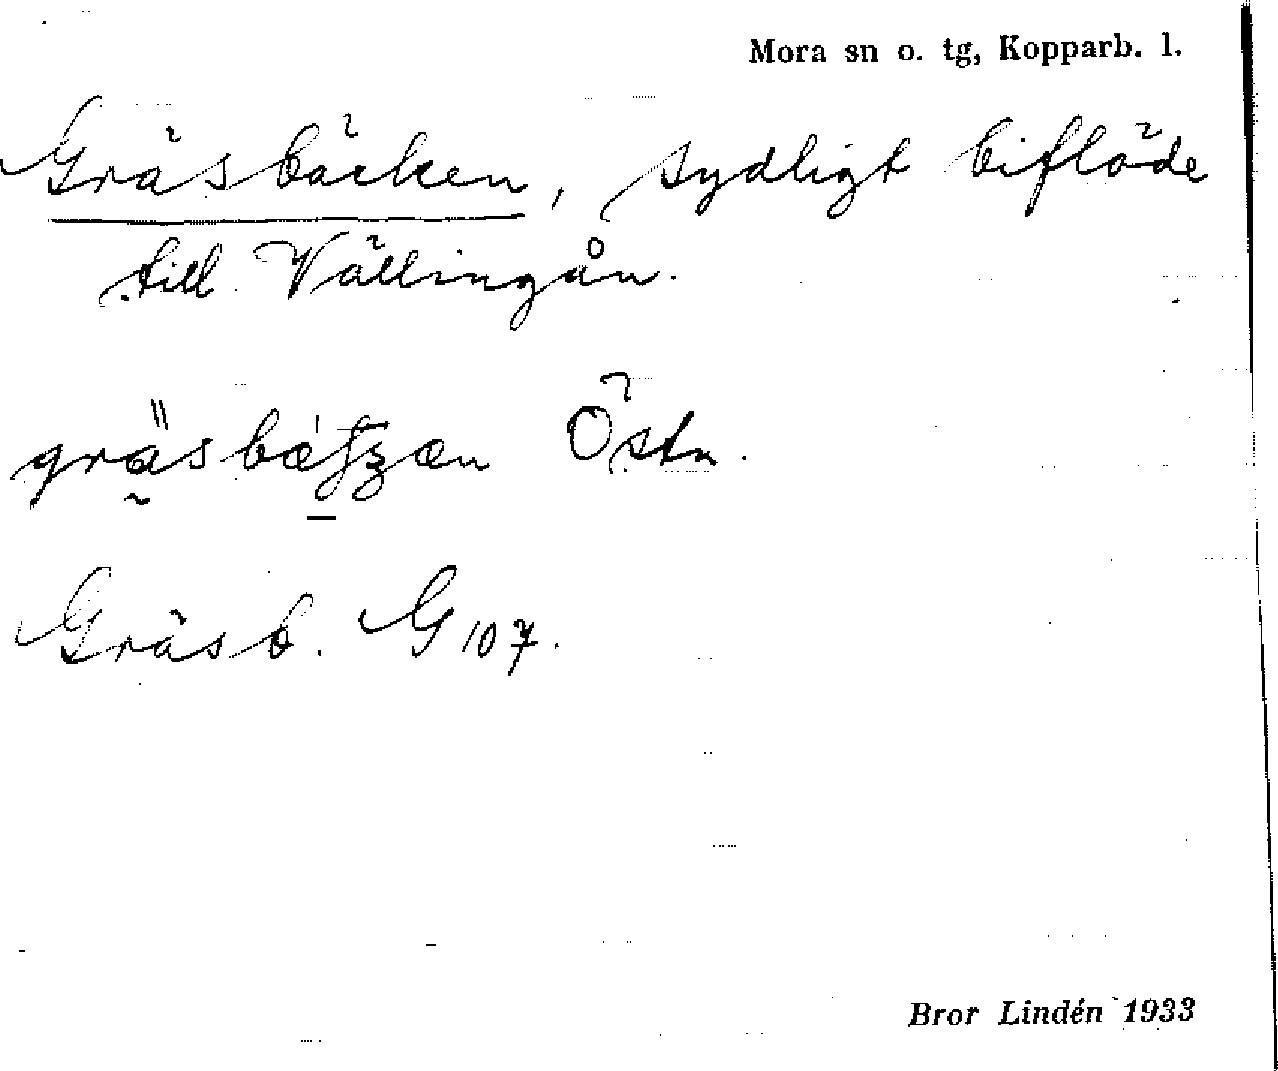 Mora sn o. tg, Kopparb. l.
Gräsbäcken, sydligt biflöde
till Vällingån.
Östn.
Gräsb. G 107.
Bror Lindén 1933